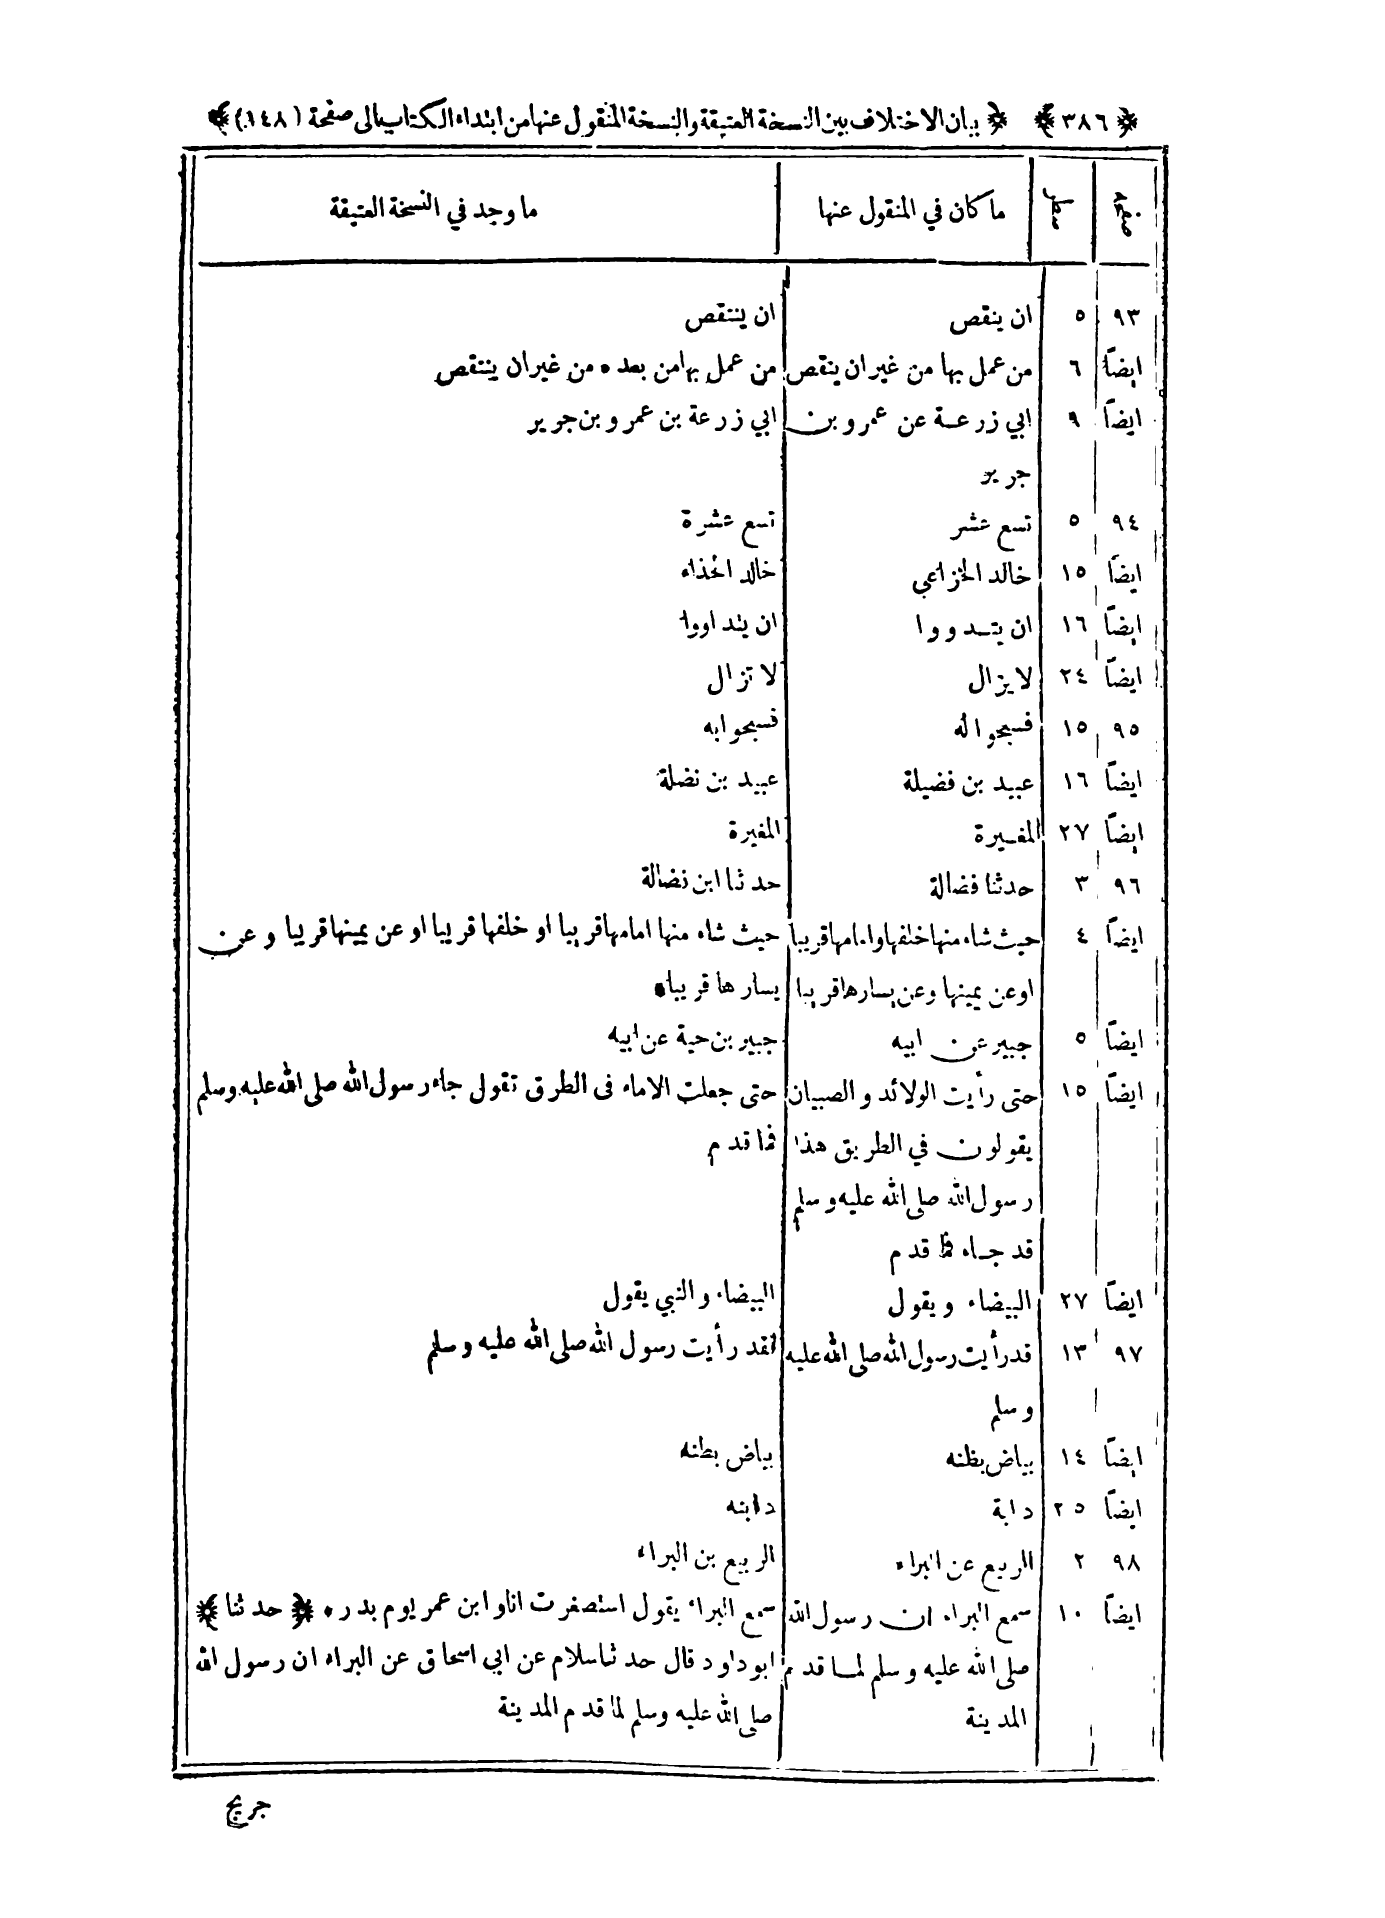 ﴿ ٣٨٦ ﴾ ﴿ بيان الاختلاف بين النسخة العتيقة والنسخة المنقول عنها من ابتداء الكتاب الى صفحة (١٤٨) ﴾
صفحه سطر ما كان في المنقول عنها ما وجد في النسخة العتيقة
٩٣ ٥ ان ينقص ان ينتقص
ايضاً ٦ من عمل بها من غير ان ينقص من عمل بها من بعده من غير ان ينتقص
ايضاً ٩ ابي زرعة عن عمرو بن ابي زرعة بن عمرو بن جرير
جرير
٩٤ ٥ تسع عشر تسع عشرة
ايضاً ١٥ خالد الخزاعي خالد الحذاء
ايضاً ١٦ ان يتدووا ان يتداووا
ايضاً ٢٤ لا يزال لا تزال
٩٥ ١٥ فسبحوا له فسبحوا به
ايضاً ١٦ عبيد بن فضيلة عبيد بن نضلة
ايضاً ٢٧ المغيرة المغيرة
٩٦ ٣ حدثنا فضالة حدثنا ابن نضالة
ايضاً ٤ حيث شاء منها خلفها وامامها قريبا حيث شاء منها امامها قريبا او خلفها قريبا او عن يمينها قريبا وعن
او عن يمينها وعن يسارها قريبا يسارها قريبا
ايضاً ٥ جبير عن ابيه جبير بن حية عن ابيه
ايضاً ١٥ حتى رأيت الولائد والصبيان حتى جعلت الاماء فى الطرق تقول جاء رسول الله صلى الله عليه وسلم
يقولون في الطريق هذا فما قدم
رسول الله صلى الله عليه وسلم
قد جاء فما قدم
ايضاً ٢٧ البيضاء ويقول البيضاء والنبي يقول
٩٧ ١٣ قد رأيت رسول الله صلى الله عليه لقد رأيت رسول الله صلى الله عليه وسلم
وسلم
ايضاً ١٤ بياض بظنه بياض بطنه
ايضاً ٢٥ دابة دابته
٩٨ ٢ الربيع عن البراء الربيع بن البراء
ايضاً ١٠ سمع البراء ان رسول الله سمع البراء يقول استصغرت انا وابن عمر يوم بدر ه ﴿ حدثنا ﴾
صلى الله عليه وسلم لما قدم ابو داود قال حدثنا سلام عن ابي اسحاق عن البراء ان رسول الله
المدينة صلى الله عليه وسلم لما قدم المدينة
جريج